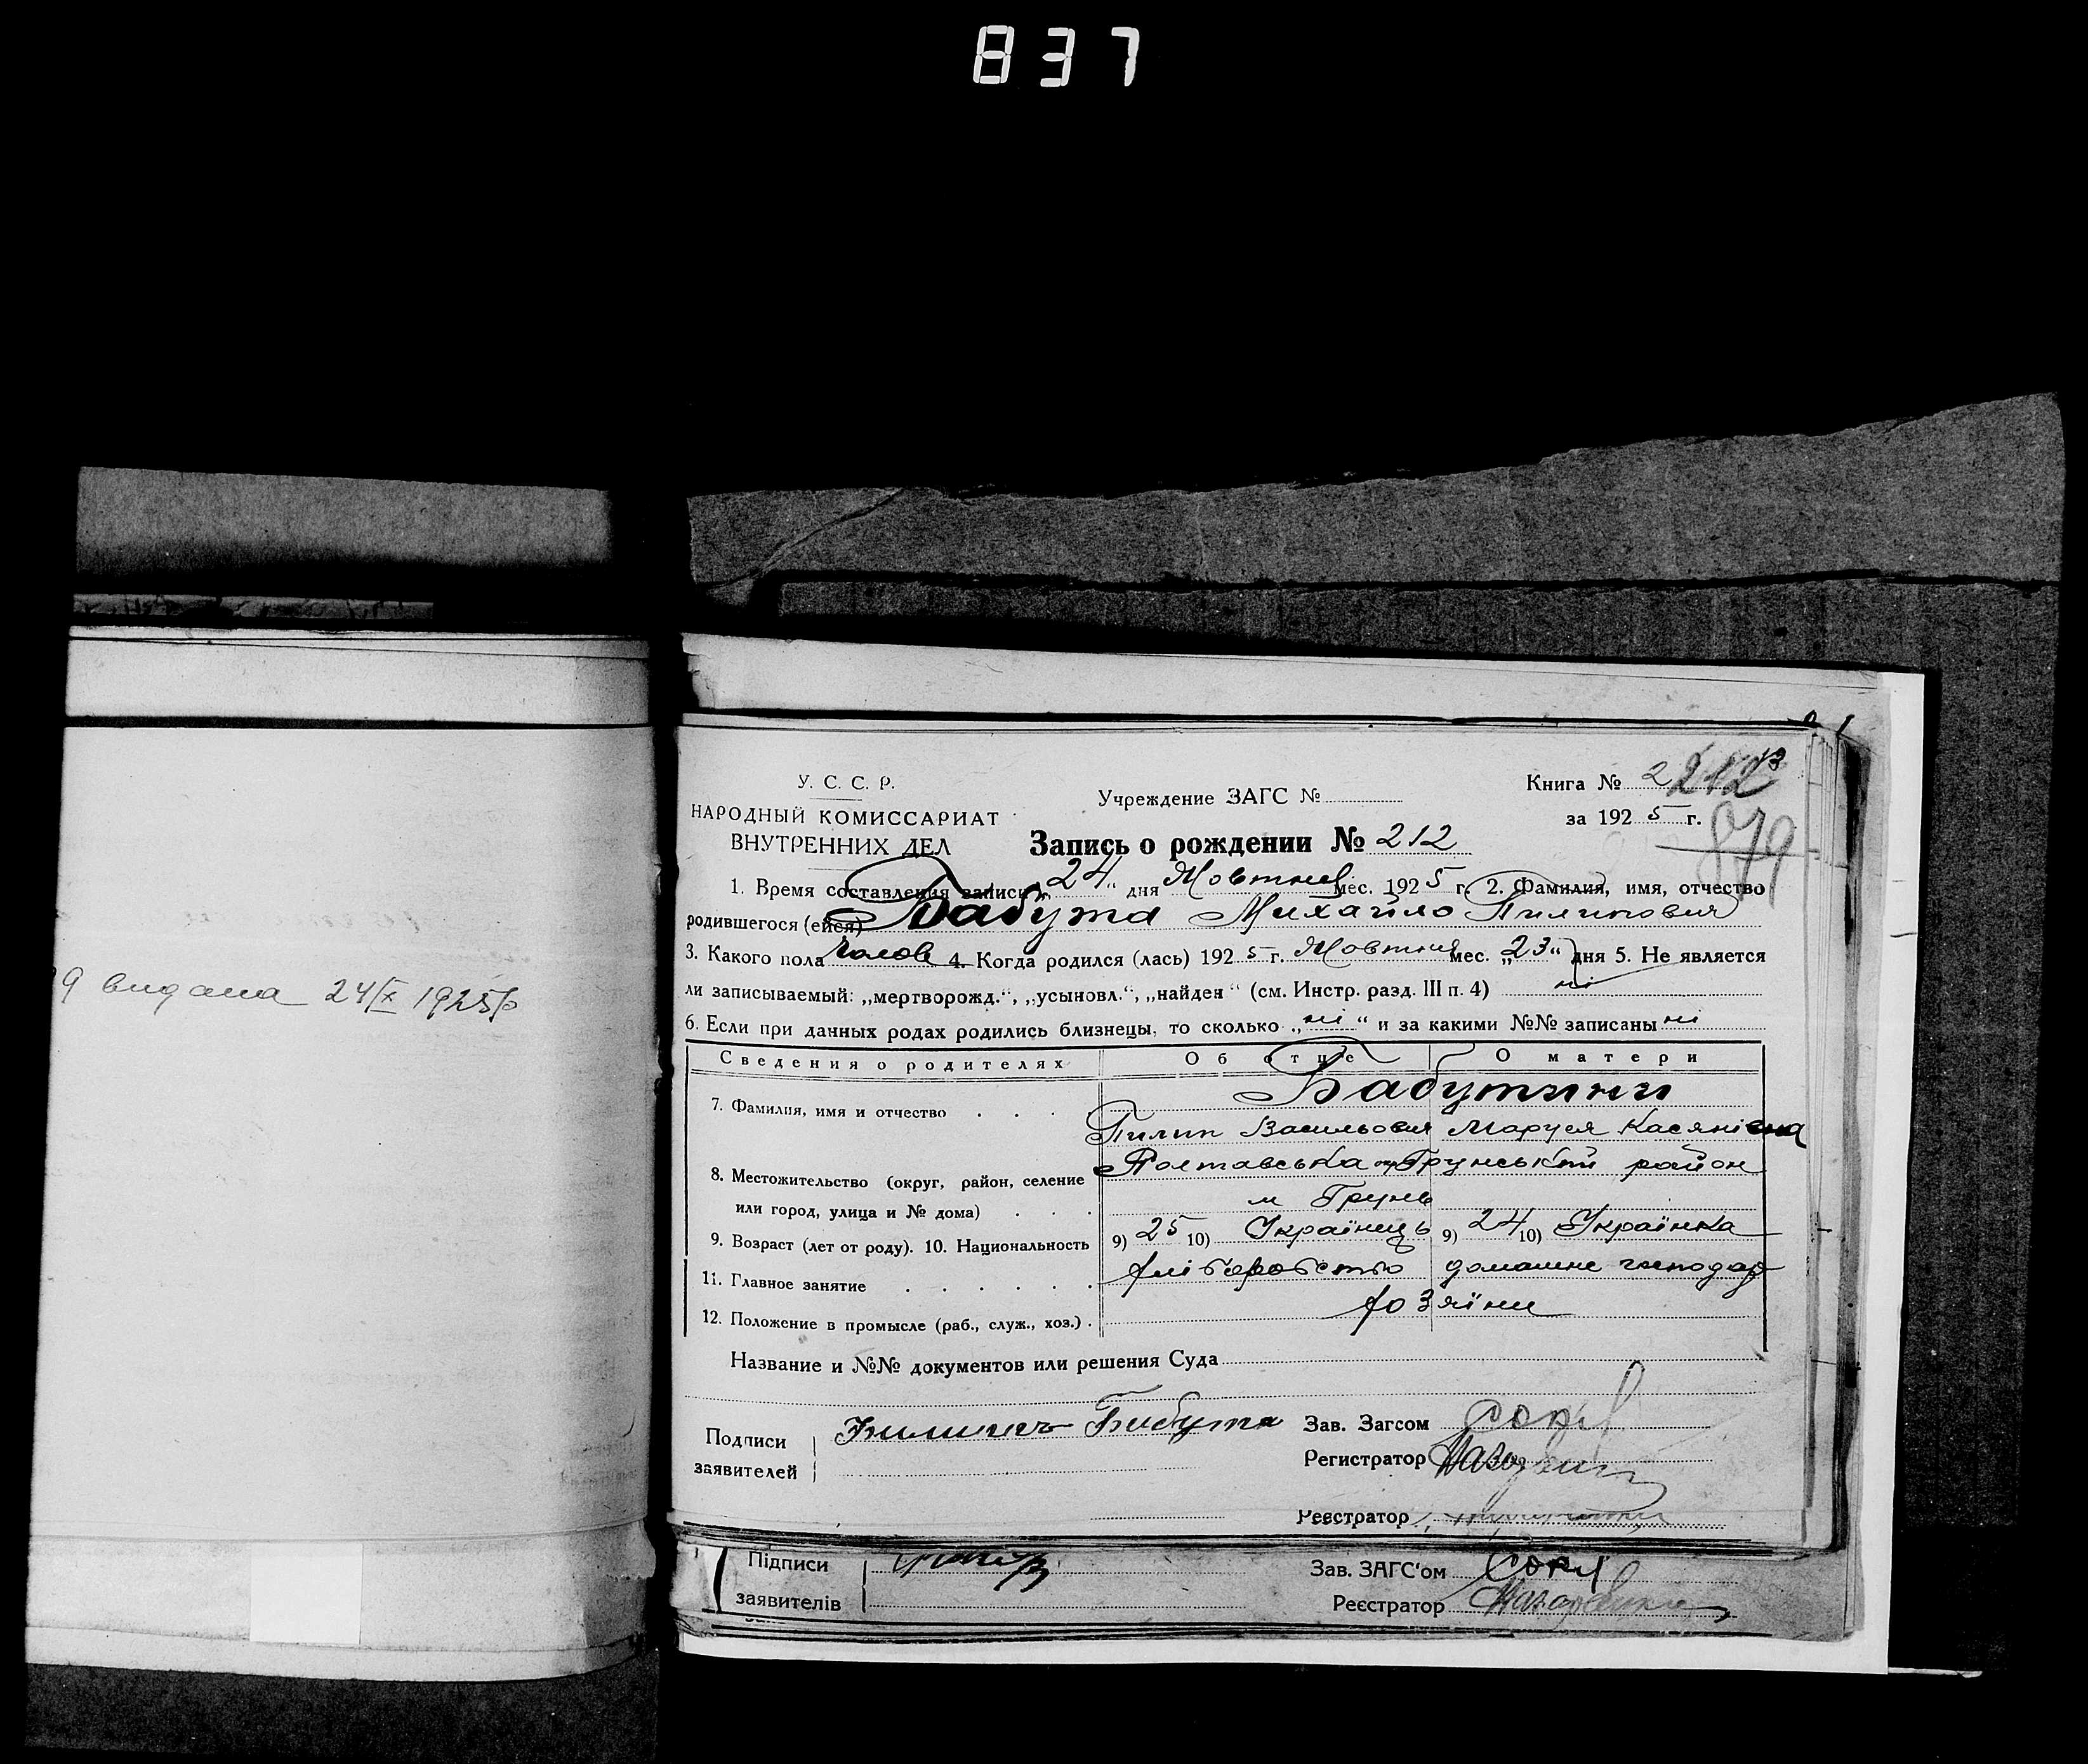 837
9 видана 24/X 1925 р
У. С. С. Р.
НАРОДНЫЙ КОМИССАРИАТ
ВНУТРЕННИХ ДЕЛ
Учреждение ЗАГС №
Книга № 2 212
за 1925 г. 879
Запись о рождении № 212
1. Время составления записи „24“ дня Жовтня мес. 1925 г. 2. Фамилия, имя, отчество
родившегося (ейся) Бабута Михайло Пилипович
3. Какого пола чолов 4. Когда родился (лась) 1925 г. Жовтня мес. „23“ дня 5. Не является
ли записываемый: „мертворожд.“, „усыновл.“, „найден“ (см. Инстр. разд. III п. 4) ні
6. Если при данных родах родились близнецы, то сколько „ні“ и за какими №№ записаны ні
Сведения о родителях Об отце О матери
7. Фамилия, имя и отчество . . . . Бабутини
Пилип Васильович Маруся Касянівна
8. Местожительство (округ, район, селение Полтавська Грунський район
или город, улица и № дома) . . . м Грунь
9. Возраст (лет от роду). 10. Национальность 9) 25 10) Українець 9) 24 10) Українка
11. Главное занятие . . . . . . хліборобство домашнє господар
12. Положение в промысле (раб., служ., хоз.) . хозяїни
Название и №№ документов или решения Суда
Подписи
заявителей
Бабута
Зав. Загсом
Регистратор
Реєстратор
Підписи
заявителів
Зав. ЗАГС‘ом
Реєстратор